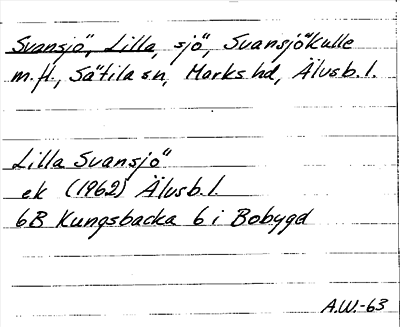 Svansjö, Lilla, sjö, Svansjökulle
m.fl., Sätila sn, Marks hd, Älvsb.l.
Lilla Svansjö
ek (1962) Älvsb.l.
6B Kungsbacka 6 i Bobygd
A.W.-63